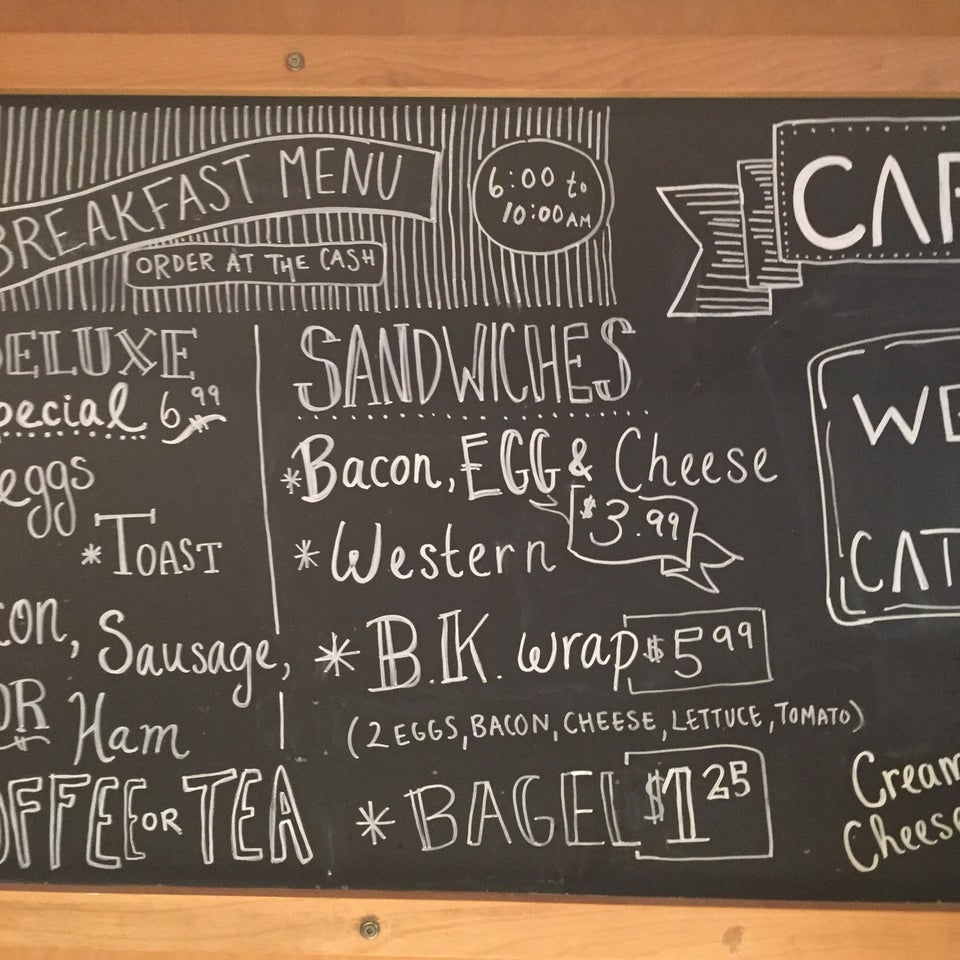 BREAKFAST MENU
ORDER AT THE CASH
6:00 to
10:00 AM
DELUXE
Special 6.99
eggs
* TOAST
con, Sausage,
OR Ham
COFFEE OR TEA
SANDWICHES
* Bacon, EGG & Cheese
$3.99
* Western
* B.K. wrap $5 99
(2 EGGS, BACON, CHEESE, LETTUCE, TOMATO)
* BAGEL $1 25
CAF
WE
CAT
Cream
Cheese